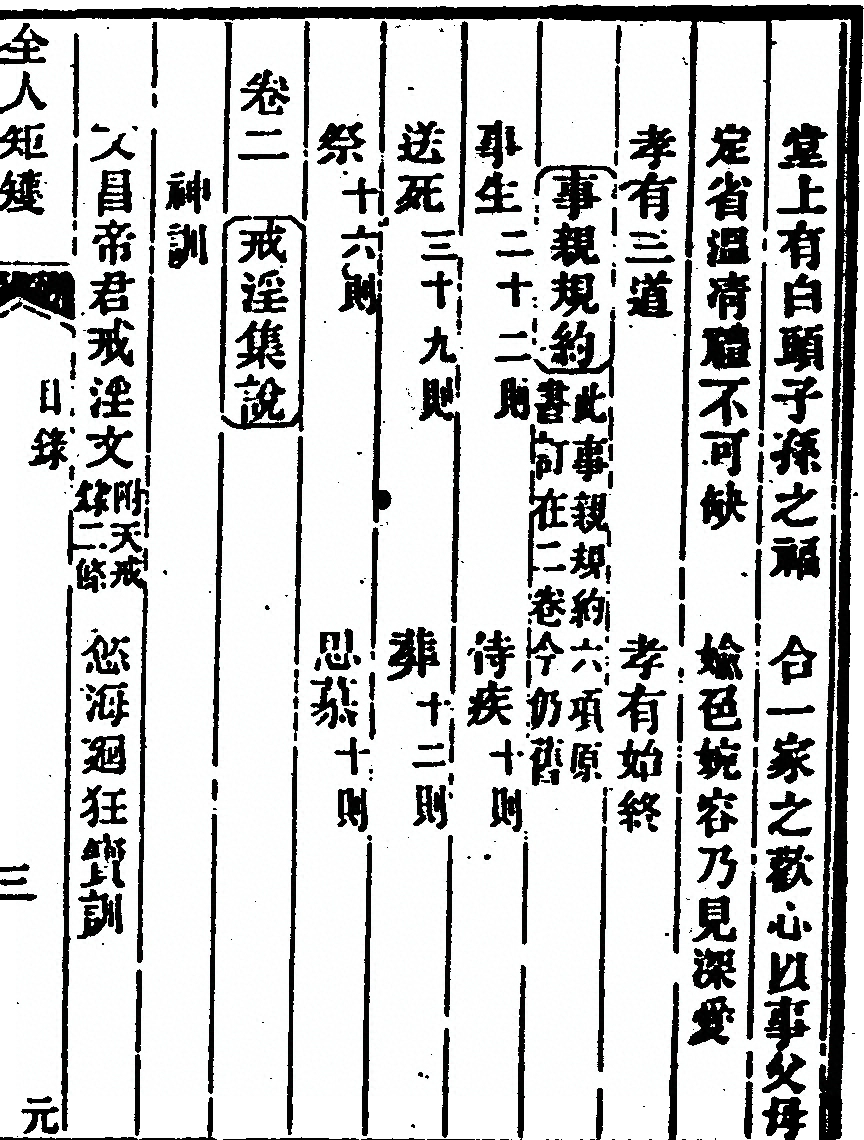 堂上有白頭子孫之福　合一家之歡心以事父母
定省溫凊禮不可缺　婾色婉容乃見深愛
孝有三道　孝有始終
事親規約　此事親規約六項原書訂在二卷今仍舊
事生二十二則　侍疾十則
送死三十九則　葬十二則
祭十六則　思慕十則
卷二　戒淫集說
神訓
文昌帝君戒淫文　附天戒錄二條　慾海迴狂寶訓
全人矩矱　目錄　三　元